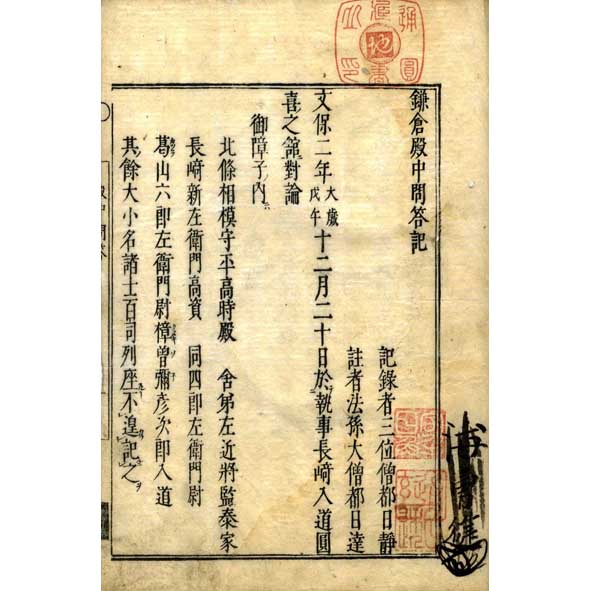 鎌倉殿中問答記
記錄者三位僧都日靜
註者法孫大僧都日達
文保二年大歲戊午十二月二十日於執事長崎入道圓
喜之舘對論
御障子ノ内ニハ
北條相模守平高時殿　舍弟左近將監泰家
長崎新左衛門高資　同四郎左衛門尉
葛山六郎左衛門尉樟曽彌彦次郎入道
其餘大小名諸士百司列座不遑記之
殿中問答
地